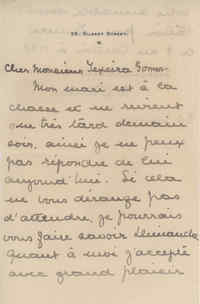 Cher Monsieur Teixeira Gomes.
Mon mari est à la
chasse et ne revient
que très tard demain
soir, ainsi je ne peux
pas répondre de lui
aujourd'hui. Si cela
ne vous dérange pas
d'attendre, je pourrais
vous faire savoir
Quant à moi j'accepte
avec grand plaisir